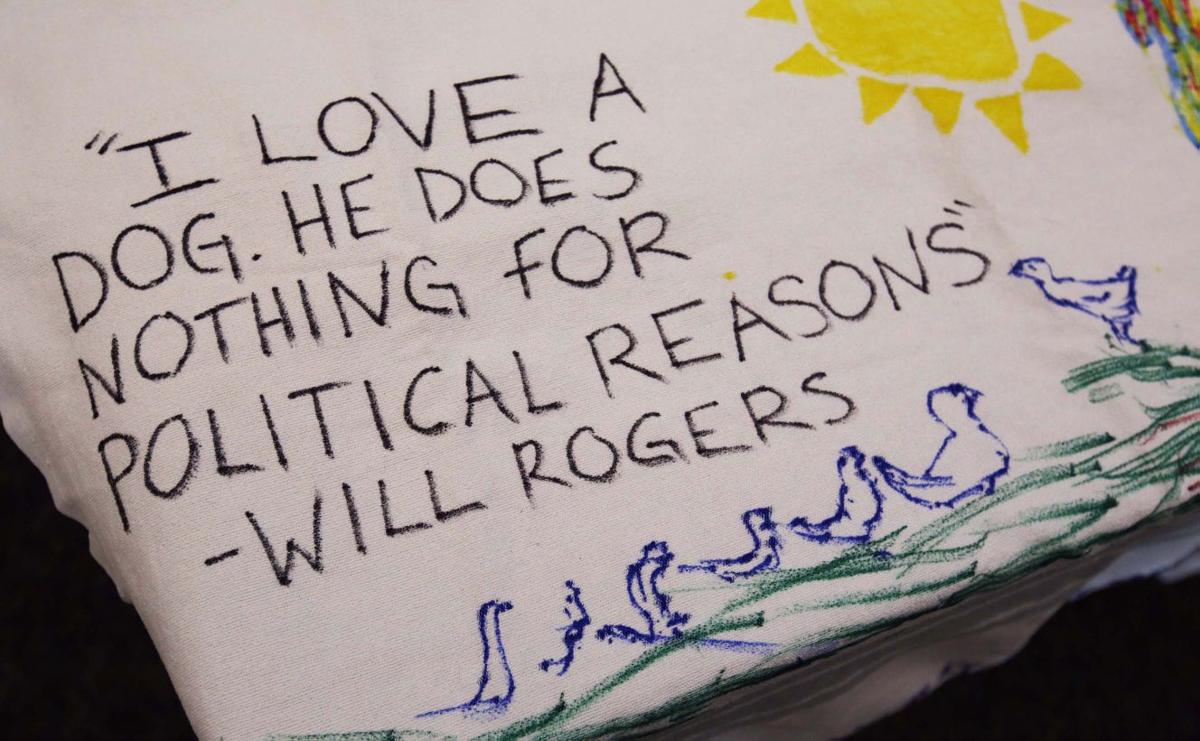 "I LOVE A
DOG. HE DOES
NOTHING FOR
POLITICAL REASONS"
-WILL ROGERS